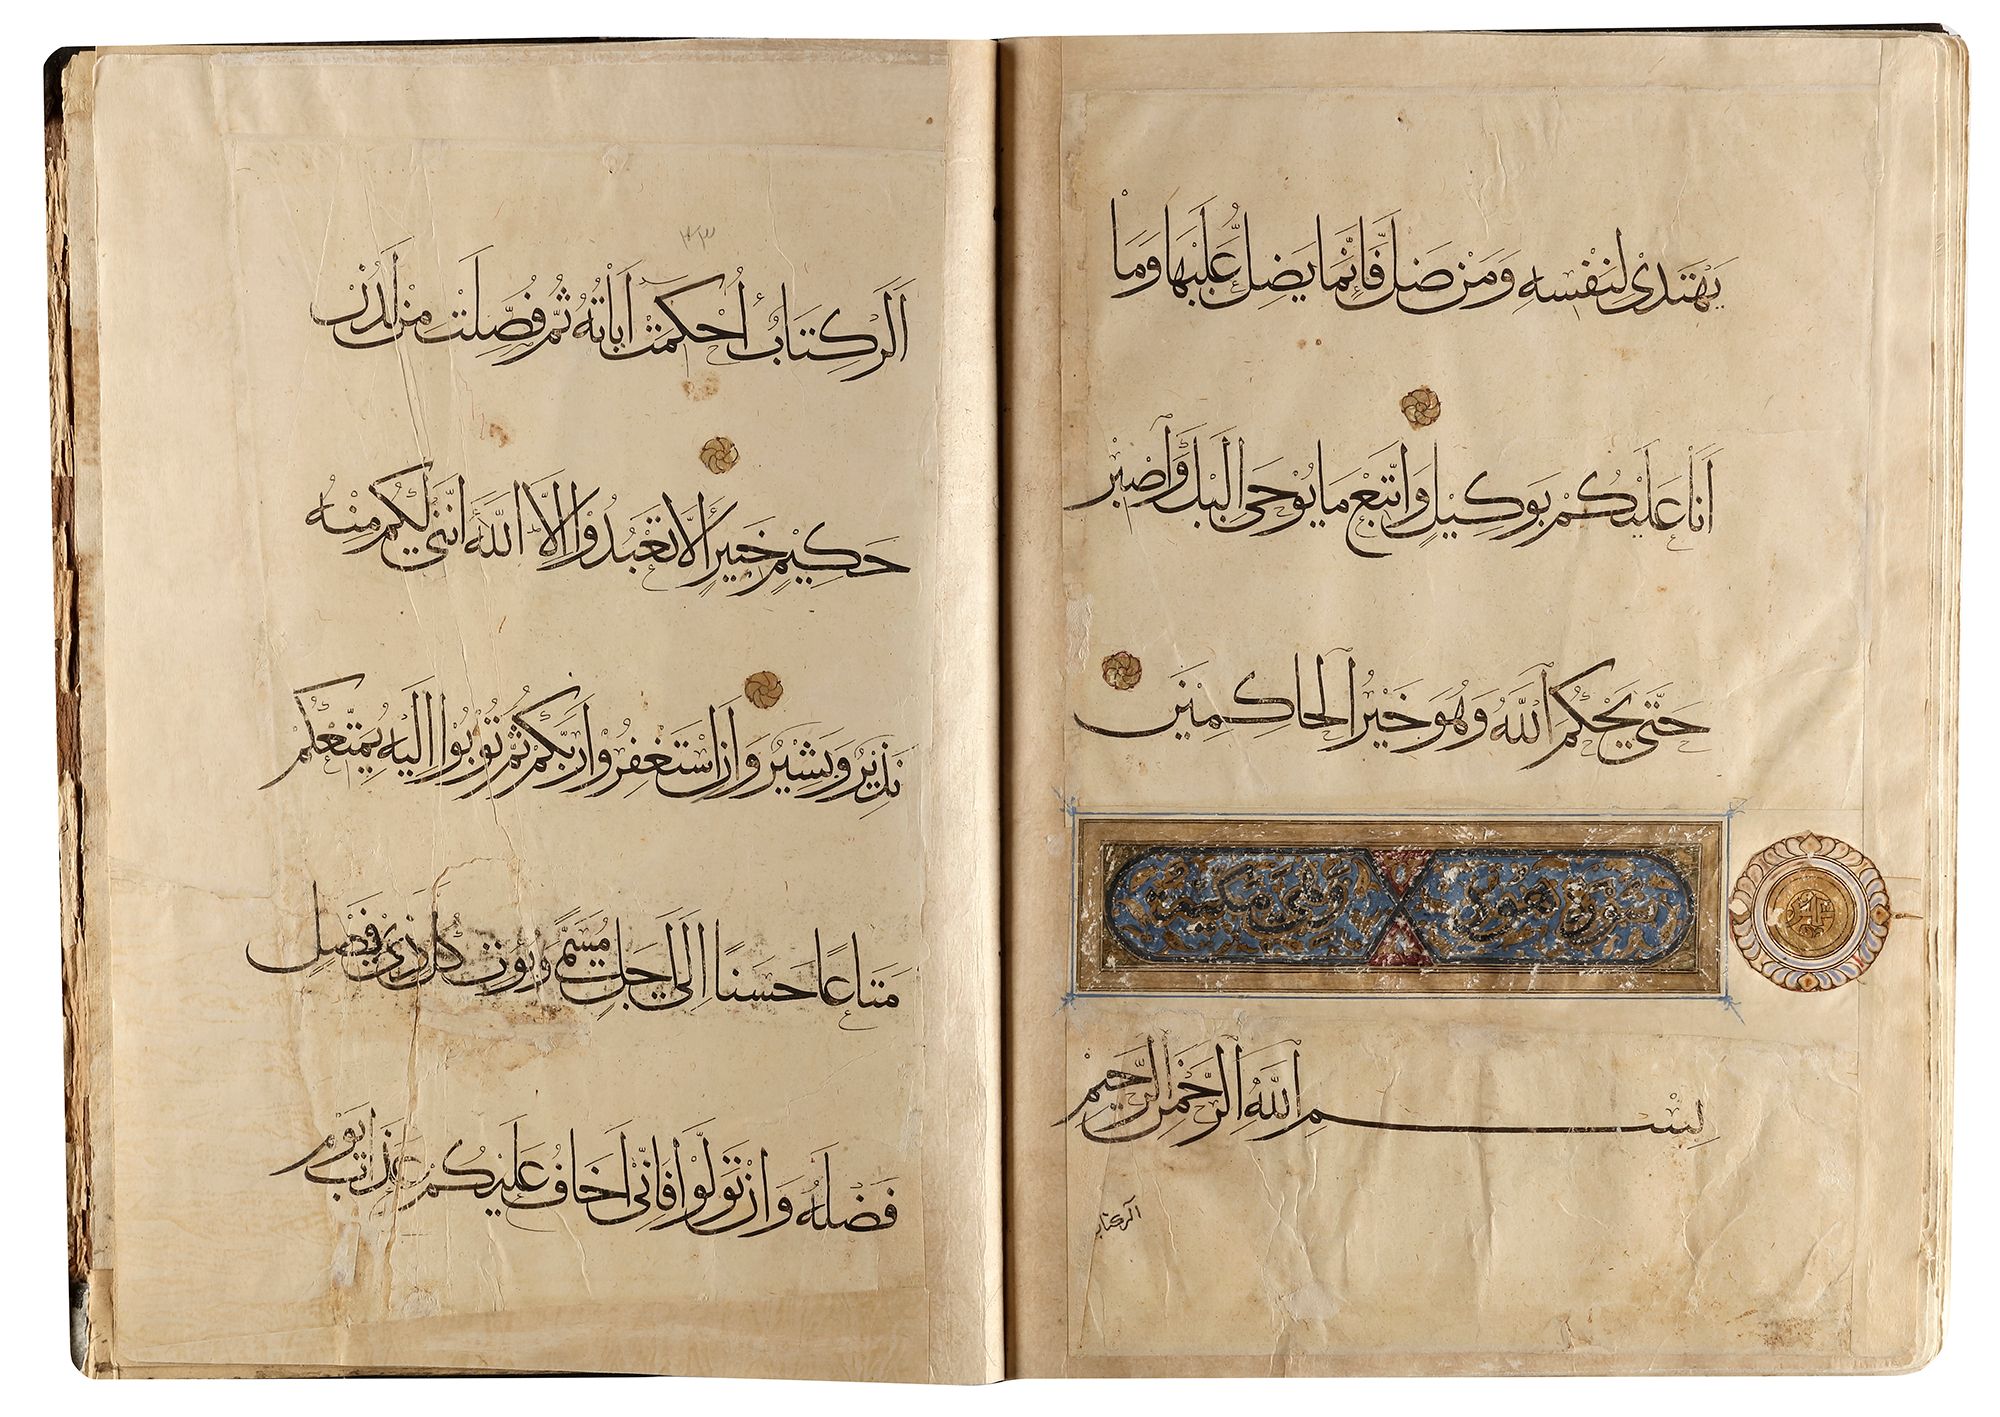 يَهْتَدِى لِنَفْسِهِ وَمَنْ ضَلَّ فَإِنَّمَا يَضِلُّ عَلَيْهَا وَمَا
أَنَا عَلَيْكُمْ بِوَكِيلٍ وَاتَّبِعْ مَا يُوْحَى إِلَيْكَ وَاصْبِرْ
حَتَّى يَحْكُمَ اللَّهُ وَهُوَ خَيْرُ الْحَاكِمِينَ
سورة هود وهى مكية
بِسْمِ اللَّهِ الرَّحْمَنِ الرَّحِيمِ
الر كتاب
الر كِتَابٌ أُحْكِمَتْ آيَاتُهُ ثُمَّ فُصِّلَتْ مِنْ لَدُنْ
حَكِيمٍ خَبِيرٍ أَلَّا تَعْبُدُوا إِلَّا اللَّهَ إِنَّنِى لَكُمْ مِنْهُ
نَذِيرٌ وَبَشِيرٌ وَأَنِ اسْتَغْفِرُوا رَبَّكُمْ ثُمَّ تُوبُوا إِلَيْهِ يُمَتِّعْكُمْ
مَتَاعًا حَسَنًا إِلَى أَجَلٍ مُسَمًّى وَيُؤْتِ كُلَّ ذِى فَضْلٍ
فَضْلَهُ وَإِنْ تَوَلَّوْا فَإِنِّى أَخَافُ عَلَيْكُمْ عَذَابَ يَوْمٍ